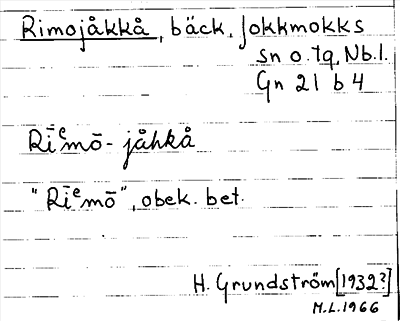 Rimojåkkå, bäck, Jokkmokks
sn o. tg, Nb.l.
Gn 21 b 4
Rīᵉmō - jåhkå
"Rīᵉmō", obek. bet.
H. Grundström [1932?]
M.L. 1966